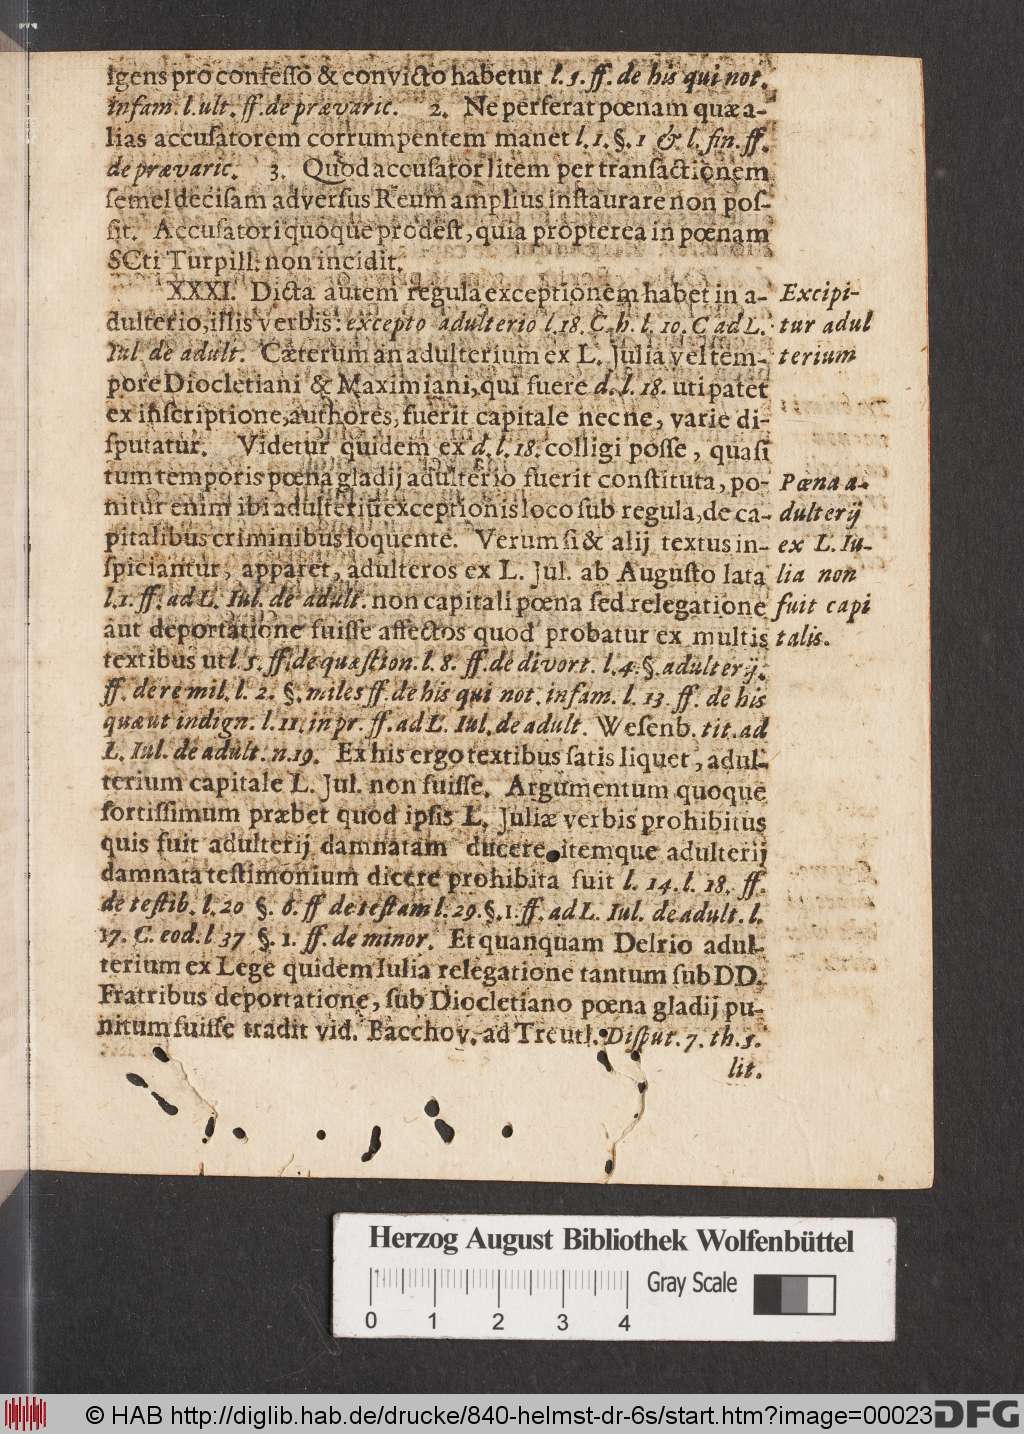 igens pro confesso & convicto habetur l. 5. ff. de his qui not.
infam. l. ult. ff. de prævaric. 2. Ne perferat pœnam quæ a-
lias accusatorem corrumpentem manet l. 1. §. 1 & l. fin. ff.
de prævaric. 3. Quod accusator litem per transactionem
semel decisam adversus Reum amplius instaurare non pos-
sit. Accusatori quoque prodest, quia propterea in pœnam
SCti Turpill. non incidit.
XXXI. Dicta autem regula exceptionem habet in a-
dulterio, illis verbis: excepto adulterio l. 18. C. h. l. 10. C ad L.
Iul. de adult. Cæterum an adulterium ex L. Julia vel tem-
pore Diocletiani & Maximiani, qui fuere d. l. 18. uti patet
ex inscriptione, authores, fuerit capitale necne, varie di-
sputatur. Videtur quidem ex d. l. 18. colligi posse, quasi
tum temporis pœna gladij adulterio fuerit constituta, po-
nitur enim ibi adulteriū exceptionis loco sub regula, de ca-
pitalibus criminibus loquente. Verum si & alij textus in-
spiciantur, apparet, adulteros ex L. Jul. ab Augusto lata
l. 1. ff. ad L. Iul. de adult. non capitali pœna sed relegatione
aut deportatione fuisse affectos quod probatur ex multis
textibus ut l. 5. ff. de quæstion. l. 8. ff. de divort. l. 4. §. adulterij.
ff. de re mil. l. 2. §. miles ff. de his qui not. infam. l. 13. ff. de his
quæ ut indign. l. 11. in pr. ff. ad L. Iul. de adult. Wesenb. tit. ad
L. Iul. de adult. n. 19. Ex his ergo textibus satis liquet, adul-
terium capitale L. Jul. non fuisse. Argumentum quoque
fortissimum præbet quod ipsis L. Juliæ verbis prohibitus
quis fuit adulterij damnatam ducere itemque adulterij
damnata testimonium dicere prohibita fuit l. 14. l. 18. ff.
de testib. l. 20 §. 6. ff de testam l. 29. §. 1. ff. ad L. Iul. de adult. l.
17. C. eod. l 37 §. 1. ff. de minor. Et quanquam Delrio adul-
terium ex Lege quidem Iulia relegatione tantum sub DD.
Fratribus deportatione, sub Diocletiano pœna gladij pu-
nitum fuisse tradit vid. Bacchov. ad Treutl. Disput. 7. th. 5.
lit.
Excipi-
tur adul
terium
Pœna a-
dulterij
ex L. Iu-
lia non
fuit capi
talis.
Herzog August Bibliothek Wolfenbüttel
Gray Scale
0 1 2 3 4
© HAB http://diglib.hab.de/drucke/840-helmst-dr-6s/start.htm?image=00023
DFG